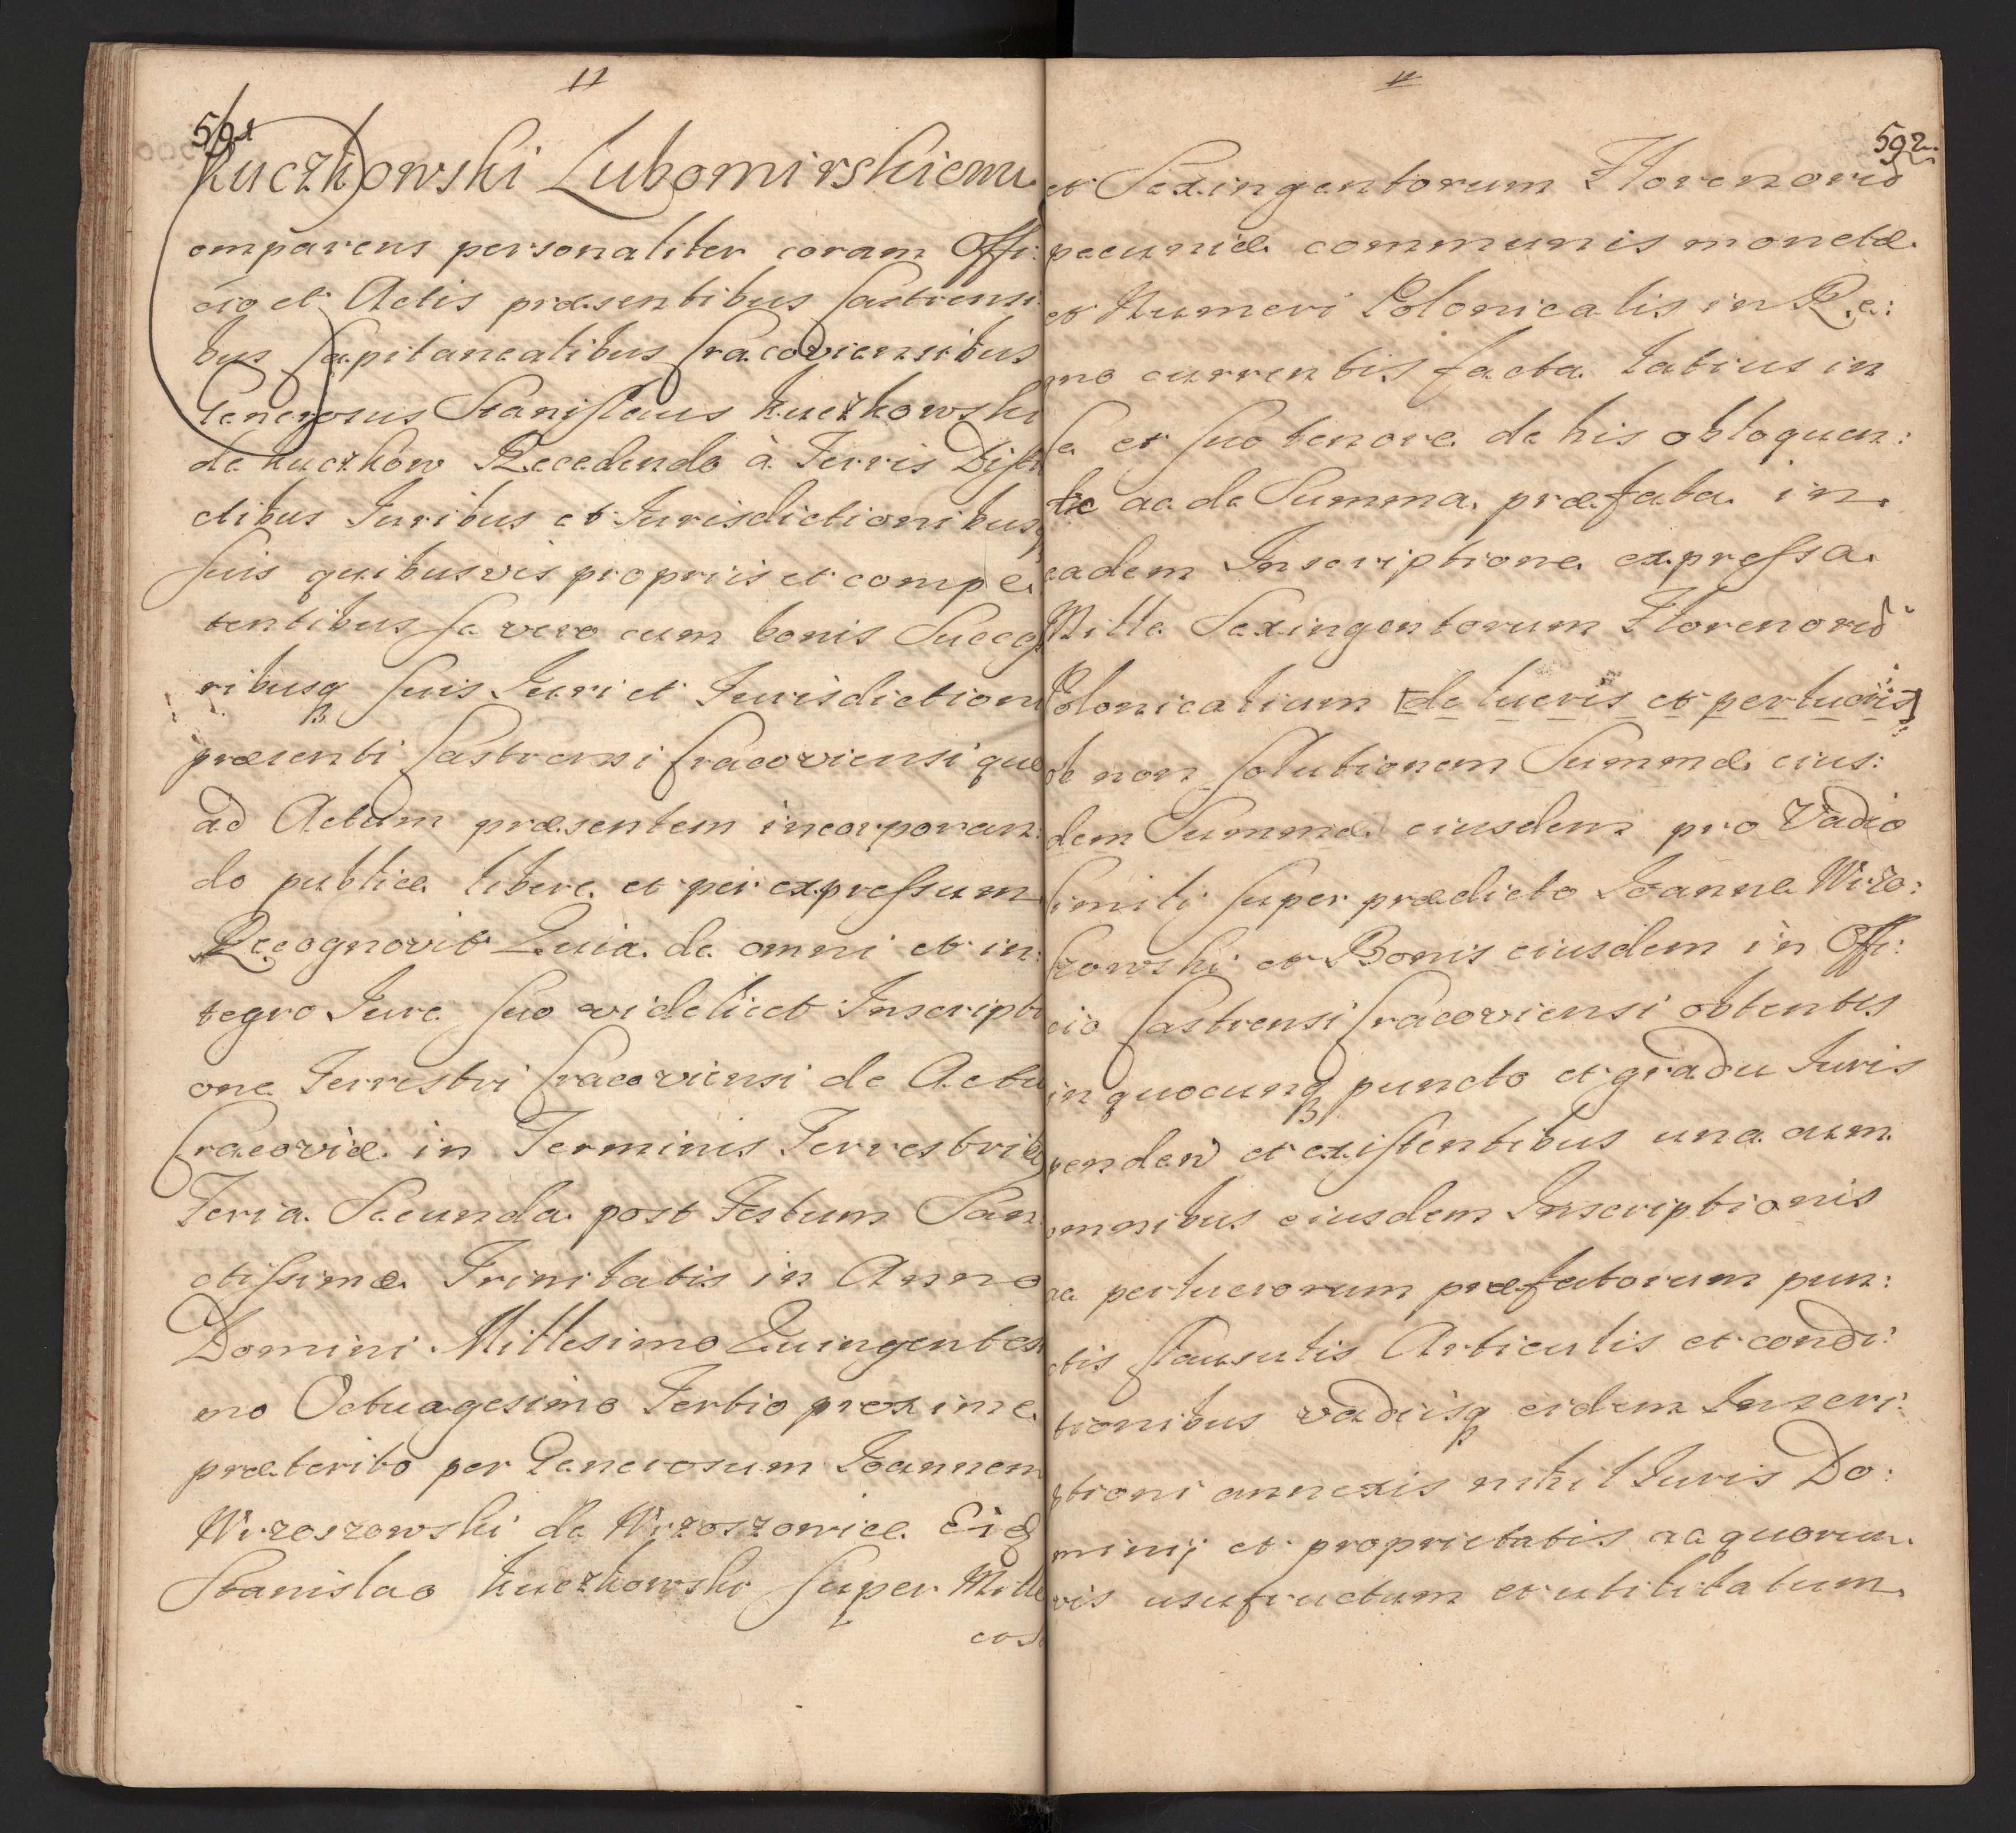 11
591
Kuczkowski Lubomirskiemu
Comparens personaliter coram Offi:
cio et Actis præsentibus Castrensi
bus Capitanealibus Cracoviensibus
Generosus Stanislaus Kuczkowski
de Kuczkow Recedendo à Terris Distri
ctibus Iuribus et Iurisdictionibusq
suis quibusvis propriis et compe
tentibus se vero cum bonis Succeso
ribusq suis Iuri et Iurisdictioni
præsenti Castrensi Cracoviensi quo
ad Actum præsentem incorporan:
do publice libere et per expressum
Recognovit Quia de omni et in:
tegro Iure suo videlicet Inscripti
one Terrestri Cracoviensi de Actu
Cracoviæ in Terminis Terrestrib
Feria Secunda post Festum San
ctissimæ Trinitatis in Anno
Domini Millesimo Quingentesi
mo Octuagesimo Tertio proxime
præterito per Generosum Ioannem
Wrzoszowski de Wrzoszowice Eid
Stanislao Kuczkowski super Mille
et S
11
592
et Sexingentorum Florenorũ
pecuniæ communis monetæ
et Numeri Polonicalis in Re:
gno currentis facta latius in
se et suo tenore de his obloquen:
te ac de Summa præfata in
eadem Inscriptione expressa
Mille Sexingentorum Florenorũ
Polonicalium [de lucris et perlucris]
ob non solutionem Summæ eius:
dem Summæ eiusdem pro Vadio
simili super prædicto Ioanne Wrzo:
szowski et Bonis eiusdem in Offi:
cio Castrensi Cracoviensi obtentis
in quocunq puncto et gradu Iuris
penden et existentibus una cum
omnibus eiusdem Inscriptionis
ac perlucrorum præfatorum pun:
ctis Clausulis Articulis et condi:
tionibus vadiisq eidem Inscri:
ptioni annexis nihil Iuris Do:
minij et proprietatis ac quorum
vis usufructum et utilitatum